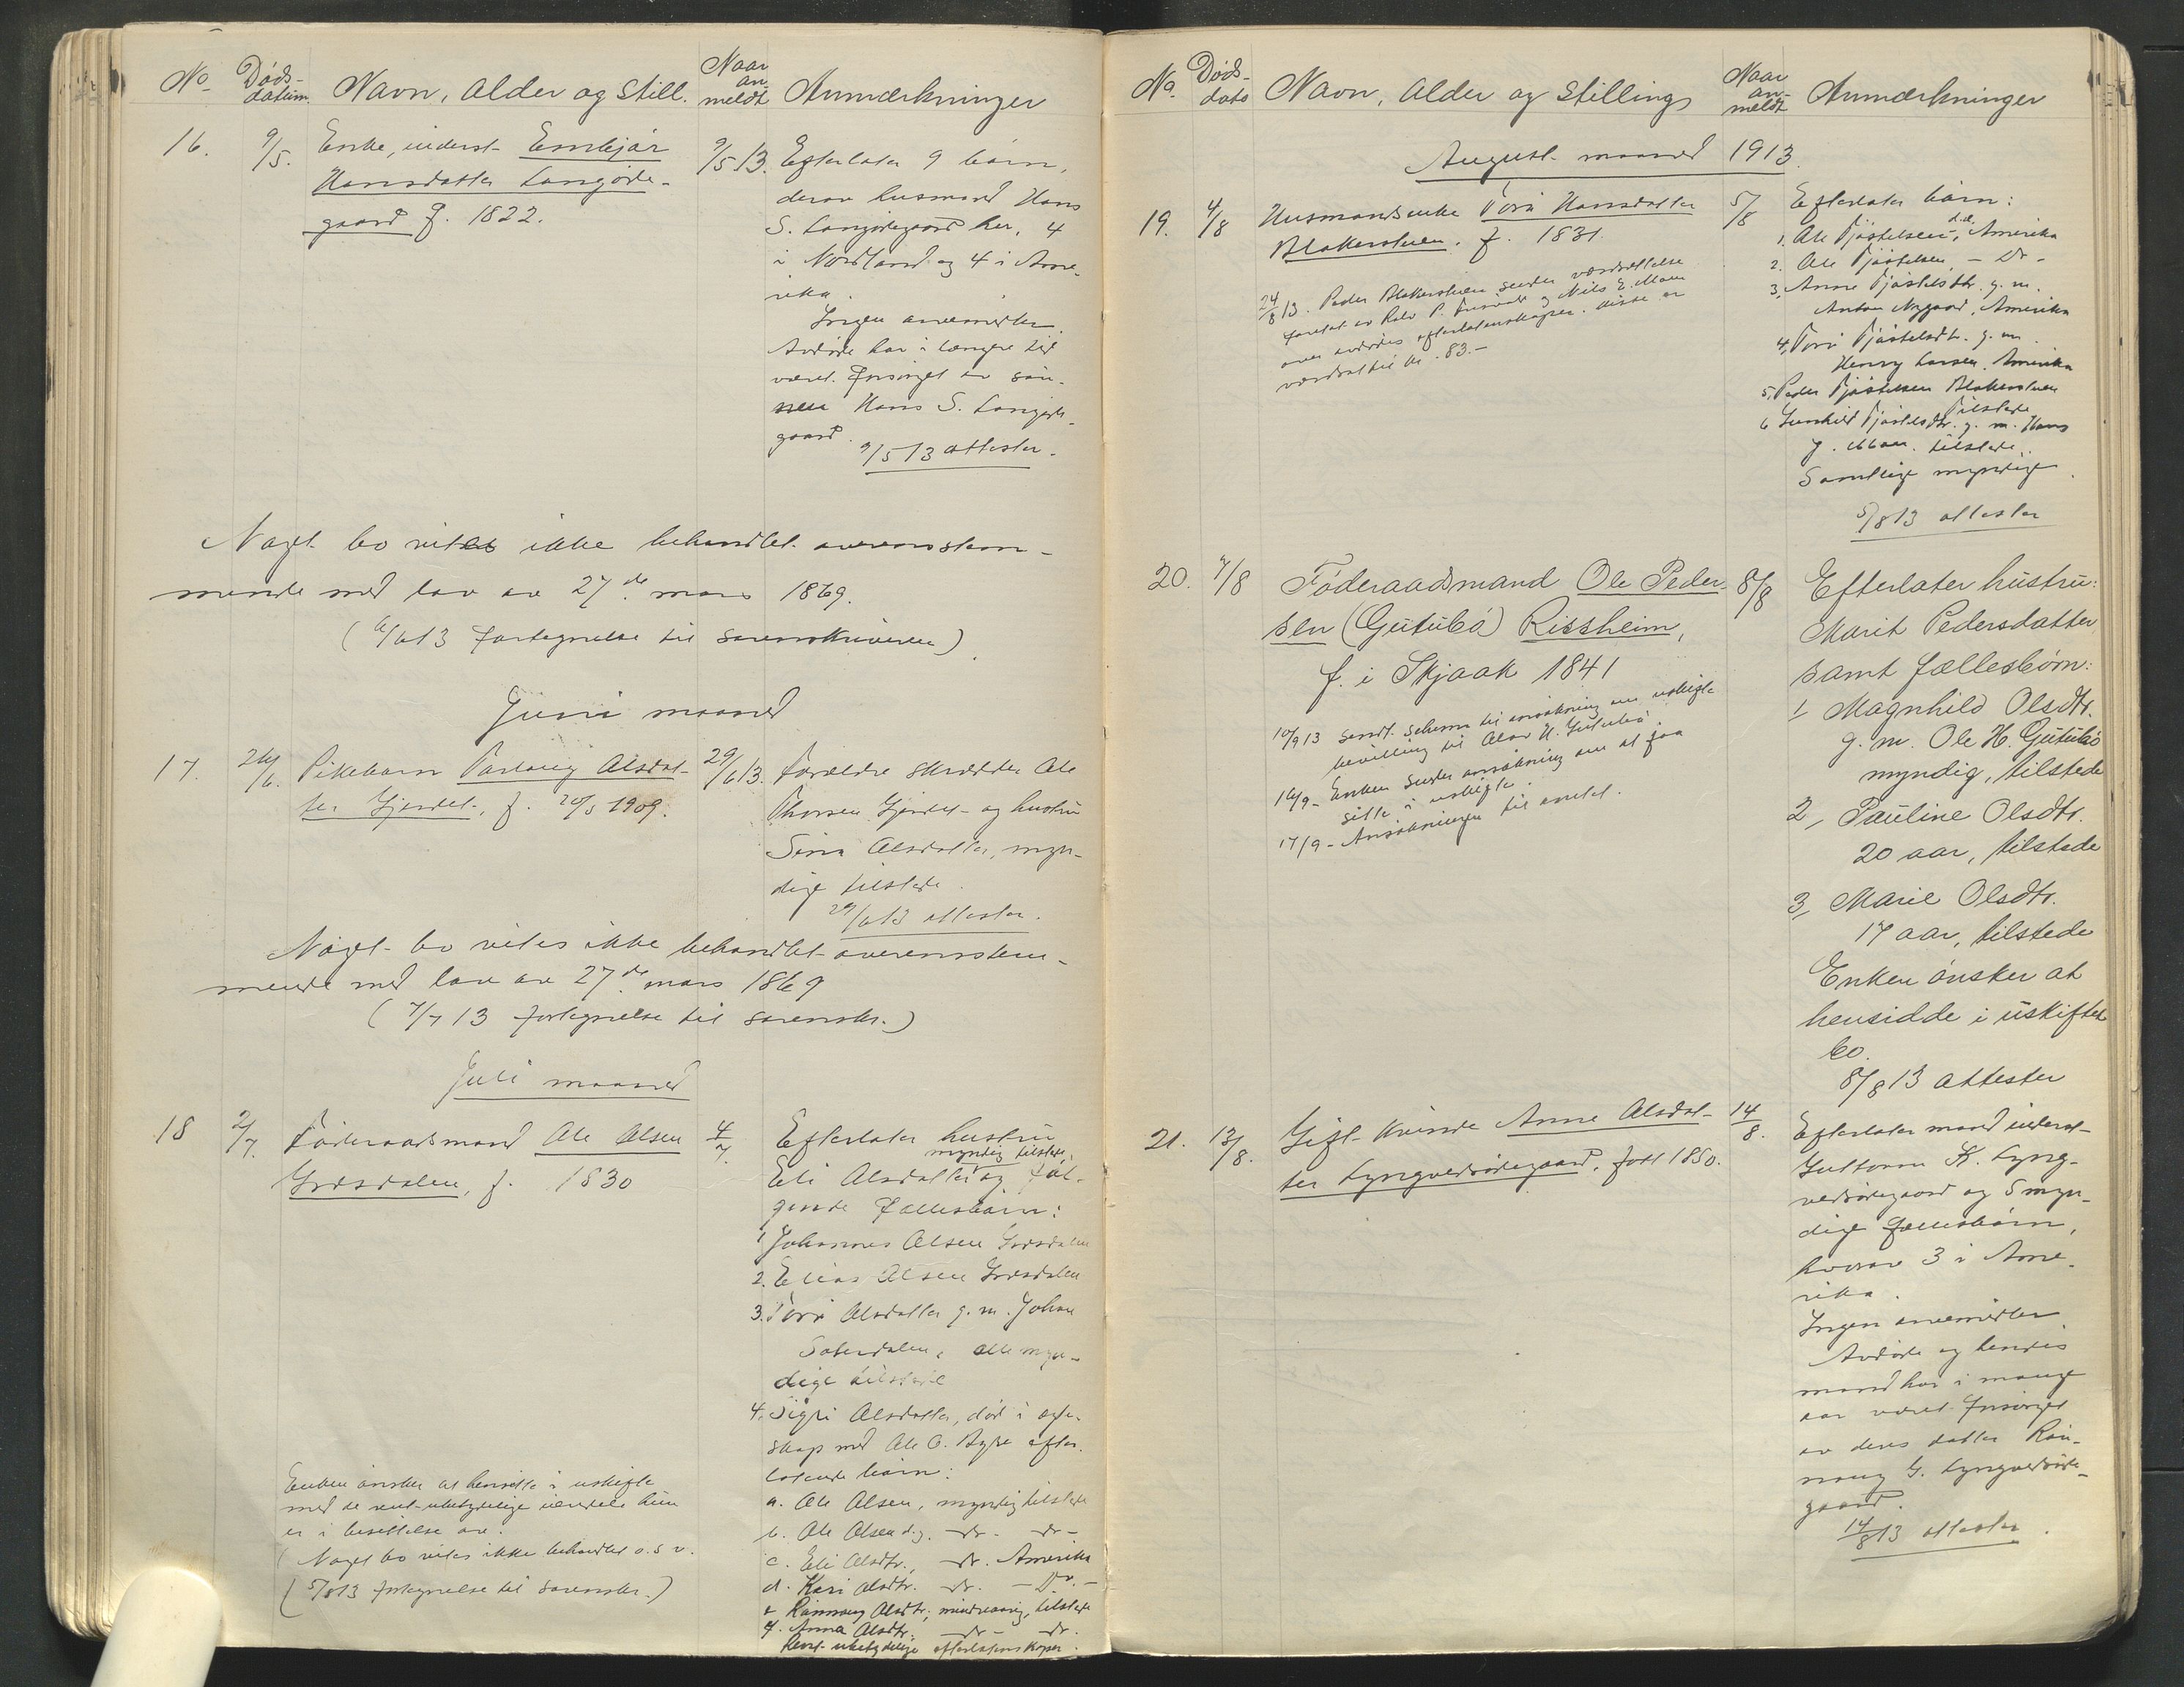 No. Døds-datum. Navn, alder og still. Naar an-meldt Anmærkninger
16. 9/5. Enke, inderst Embjør
Hansdatter Langøde-
gaard f. 1822.
9/5 13. Efterlater 9 børn,
derav husmand Hans
S. Langødegaard her, 4
i Nordland og 4 i Ame-
rika.
Ingen arvemidler.
Avdøde har i længre tid
været forsørget av søn-
nen Hans S. Langøde-
gaard.
9/5 13 attester.
Noget bo vites ikke behandlet overensstem-
mende med lov av 27de mars 1869.
( 6/6 13 fortegnelse til sorenskriveren)
Juni maaned
17. 26/6. Pikebarn Parlaug Olsdat-
ter Gjerdet, f. 20/5 1909.
29/6 13. Forældre skrædder Ole
Thorsen Gjerdet og hustru
Sina Olsdatter, myn-
dige tilstede.
29/6 13 attester.
Noget bo vites ikke behandlet overensstem-
mende med lov av 27de mars 1869
( 7/7 13 fortegnelse til sorenskr.)
Juli maaned
18 2/7. Føderaadsmand Ole Olsen
Grøsdalen, f. 1830
4/7. Efterlater hustru
myndig tilstede,
Eli Olsdatter og føl-
gende fællesbørn:
1. Johannes Olsen Grøsdalen
2. Elias Olsen Grøsdalen
3. Torø Olsdatter g. m. Johan
Soterdalen, alle myn-
dige tilstede
4. Sigri Olsdatter, død i egte-
skap med Ole O. Byre efter-
latende børn:
a. Ole Olsen, myndig tilstede
b. Ole Olsen d.y. —dr. —dr—
c. Eli Olsdtr., —dr. Amerika
d. Kari Olsdtr. —dr. — Dr. —
e. Rønnaug Olsdtr., mindreaarig, tilstede
f. Anna Olsdtr. —dr— —dr.
Rent ubetydelige efterlatenskaper.
Enken ønsker at hensitte i uskifte
med de rent ubetydelige eiendele hun
er i besittelse av.
( Noget bo vites ikke behandlet o.s.v.
( 5/8 13 fortegnelse til sorenskr.)
No. Døds-dato Navn, alder og stillings Naar an-meldt Anmærkninger
August maaned 1913.
19. 4/8 Husmandsenke Torø Hansdatter
Blakerstuen. f. 1831.
24/8 13. Peder Blakerstuen sender værdsættelse
foretat av Rolv P. og Nils E. Moen
over avdødes efterlatenskaper. Disse er
værdsat til kr. 83.—
5/8 Efterlater børn:
1. Ole Tjøstelsen d.e. Amerika
2. Ole Tjøstelsen — Dr —
3. Anne Tjøstelsdtr. g. m.
Anton Nygaard, Amerika
4. Torø Tjøstelsdtr. g. m.
Henry Larsen, Amerika
5. Peder Tjøstelsen Blakerstuen
tilstede
6 Gunhild Tjøstelsdtr. g. m. Hans
J. Moen. tilstede.
Samtlige myndige.
5/8 13 attester
20. 7/8 Føderaadsmand Ole Peder-
sen (Gutubø) Rissheim,
f. i Skjaak 1841
10/9 13 sendt schema til ansøkning om uskifte
bevilling til Olav H. Gutubø.
16/9 – Enken sender ansøkning om at faa
sitte i uskifte.
17/9 – Ansøkningen til amtet.
8/8 Efterlater hustru:
Marit Pedersdatter,
samt fællesbørn:
1, Magnhild Olsdtr.
g. m. Ole H. Gutubø
myndig, tilstede
2, Pauline Olsdtr.
20 aar, tilstede
3, Marie Olsdtr.
17 aar, tilstede
Enken ønsker at
hensidde i uskiftet
bo.
8/8 13 attester
21. 13/8. Gift kvinde Anne Olsdat-
ter Lyngvedødegaard, født 1850.
14/8. Efterlater mand inderst
Guttorm K. Lyng-
vedødegaard og 5 myn-
dige fællesbørn,
hvorav 3 i Ame-
rika.
Ingen arvemidler.
Avdøde og hendes
mand har i mange
aar været forsørget
av deres datter Røn-
naug G. Lyngvedøde-
gaard.
14/8 13 attester.